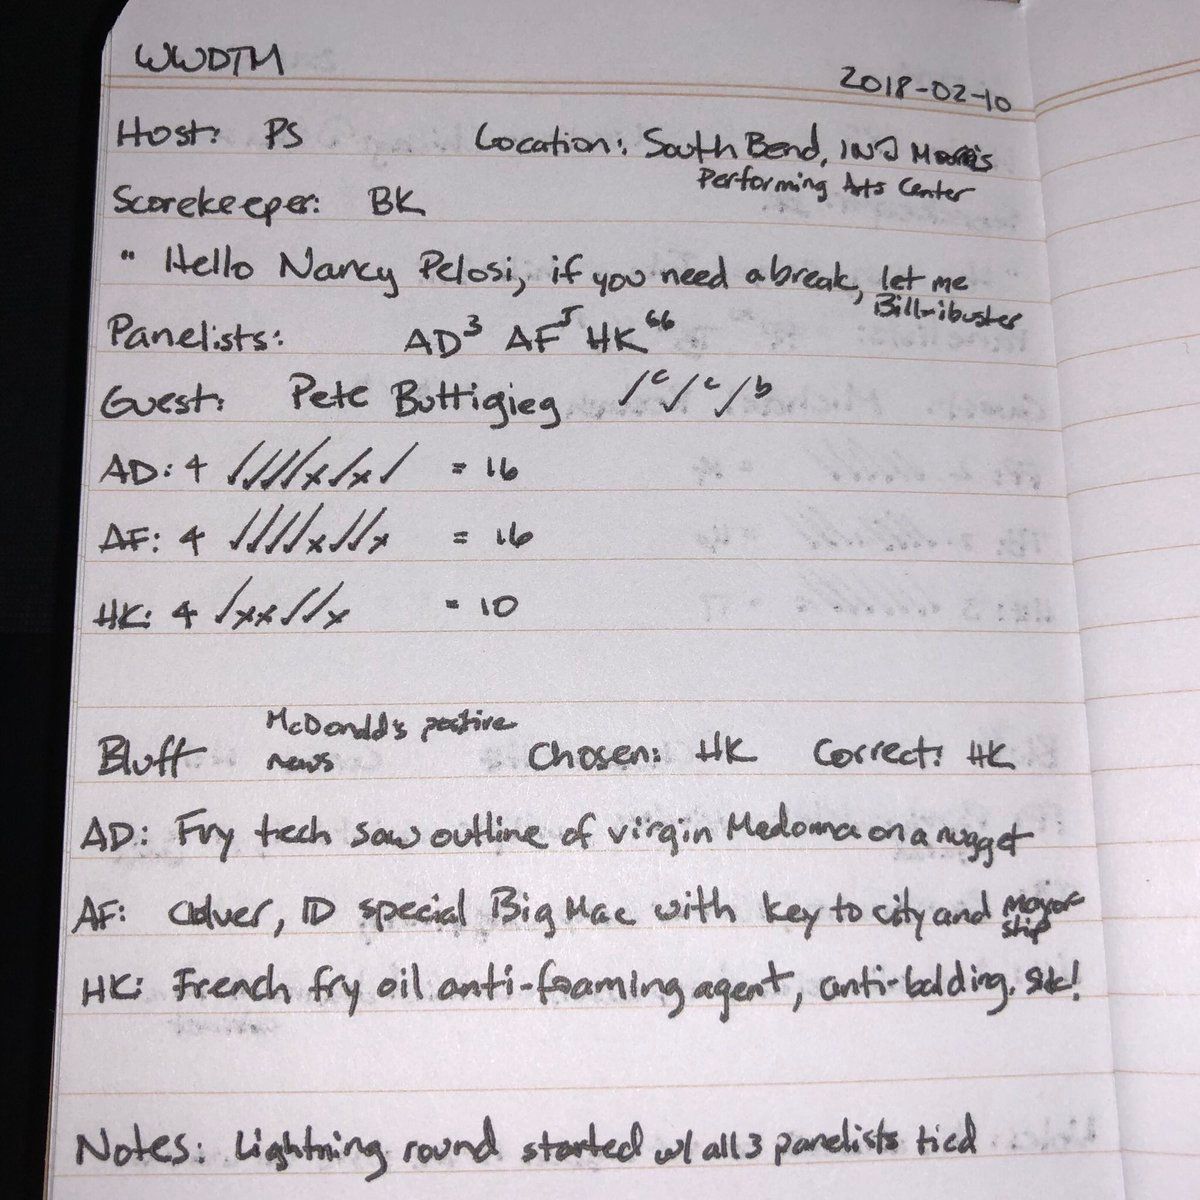 WWDTM
2018-02-10
Host: PS Location: South Bend, IN Morris
Performing Arts Center
Scorekeeper: BK
" Hello Nancy Pelosi, if you need a break, let me
Bill-ibuster
Panelists: AD³ AF⁵ HK⁶⁶
Guest: Pete Buttigieg ✓c ✓c ✓b
AD: 4 ✓✓✓✓x✓x✓ = 16
AF: 4 ✓✓✓✓x✓✓x = 16
HK: 4 ✓xx✓✓x = 10
McDonald's positive
Bluff news Chosen: HK Correct: HK
AD: Fry tech saw outline of virgin Madonna on a nugget
AF: Culver, ID special Big Mac with key to city and mayor
ship
HK: French fry oil anti-foaming agent, anti-balding.
Notes: Lightning round started w/ all 3 panelists tied